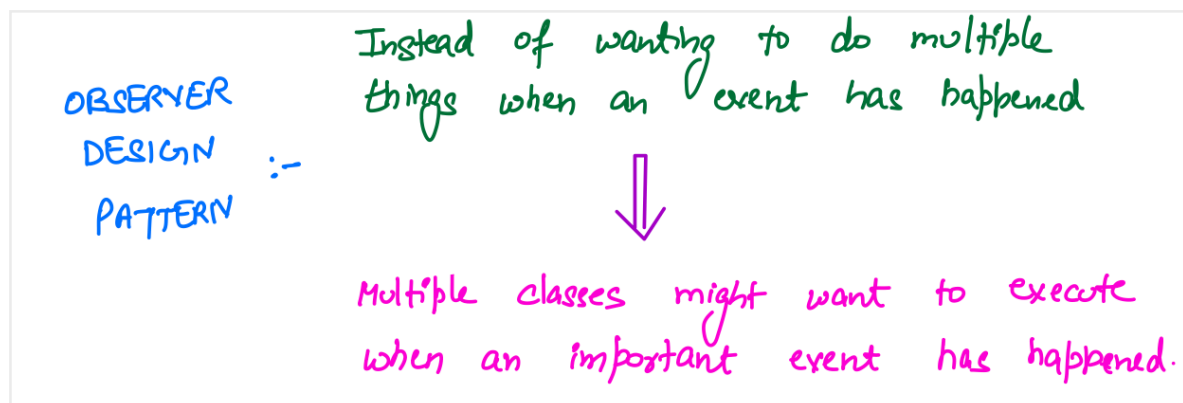 OBSERVER
DESIGN :-
PATTERN
Instead of wanting to do multiple
things when an event has happened
Multiple classes might want to execute
when an important event has happened.